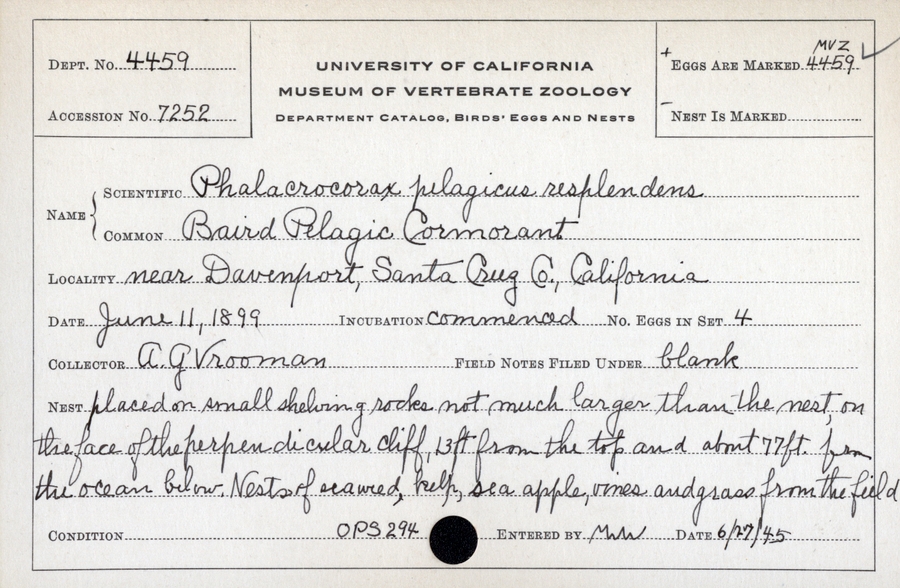 DEPT. No. 4459
ACCESSION No. 7252
UNIVERSITY OF CALIFORNIA
MUSEUM OF VERTEBRATE ZOOLOGY
DEPARTMENT CATALOG, BIRDS' EGGS AND NESTS
MVZ
+ EGGS ARE MARKED 4459 ✓
– NEST IS MARKED
NAME { SCIENTIFIC Phalacrocorax pelagicus resplendens
COMMON Baird Pelagic Cormorant
LOCALITY near Davenport, Santa Cruz Co., California
DATE June 11, 1899 INCUBATION commenced No. EGGS IN SET 4
COLLECTOR A. G Vrooman FIELD NOTES FILED UNDER blank
NEST placed on small shelving rocks not much larger than the nest, on
the face of the perpendicular cliff, 13ft from the top and about 77ft. from
the ocean below. Nests of seaweed, kelp, sea apple, vines and grass from the field
CONDITION OPS 294 ENTERED BY DATE 6/27/45